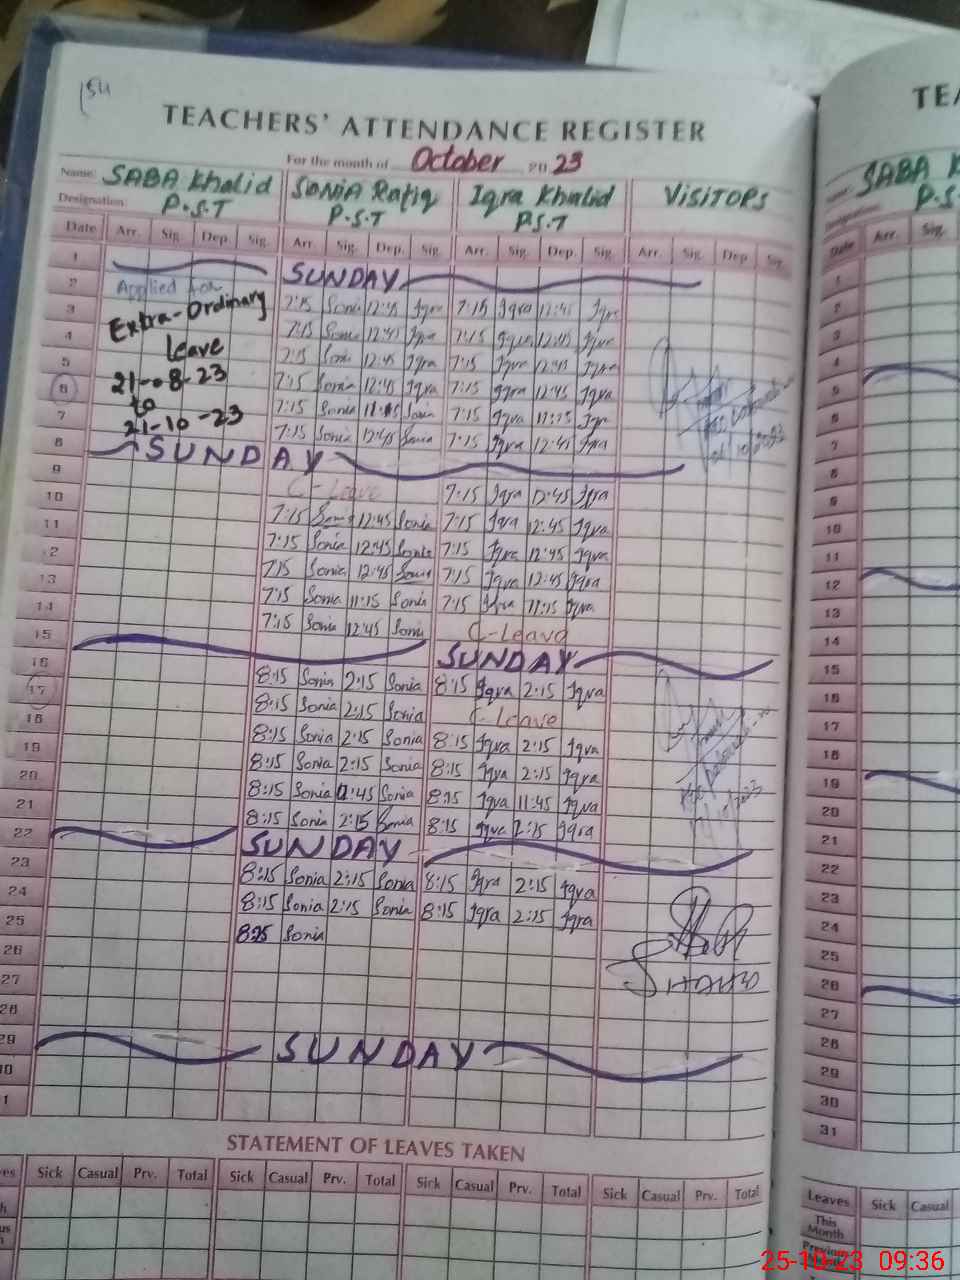 TEACHERS' ATTENDANCE REGISTER
For the month of October 20 23
Name: SABA Khalid Sonia Rafiq Iqra Khalid VISITORS
Designation: P.S.T P.S.T P.S.T
Date Arr. Sig. Dep. Sig. Arr. Sig. Dep. Sig. Arr. Sig. Dep. Sig. Arr. Sig. Dep. Sig.
1 SUNDAY
2 Applied for 7:15 Sonia 12:45 Iqra 7:15 Iqra 12:45 Iqra
3 Extra-Ordinary 7:15 Sonia 12:45 Iqra 7:15 Iqra 12:45 Iqra
4 leave 7:15 Sonia 12:45 Iqra 7:15 Iqra 12:45 Iqra
5 21-08-23 7:15 Sonia 12:45 Iqra 7:15 Iqra 12:45 Iqra
6 to 7:15 Sonia 11:15 Sonia 7:15 Iqra 11:15 Iqra
7 21-10-23 7:15 Sonia 12:45 Sonia 7:15 Iqra 12:45 Iqra
8 SUNDAY
9 C-Leave 7:15 Iqra 12:45 Iqra
10 7:15 Sonia 12:45 Sonia 7:15 Iqra 12:45 Iqra
11 7:15 Sonia 12:45 Sonia 7:15 Iqra 12:45 Iqra
12 7:15 Sonia 12:45 Sonia 7:15 Iqra 12:45 Iqra
13 7:15 Sonia 11:15 Sonia 7:15 Iqra 11:15 Iqra
14 7:15 Sonia 12:45 Sonia C-Leave
15 SUNDAY
16 8:15 Sonia 2:15 Sonia 8:15 Iqra 2:15 Iqra
17 8:15 Sonia 2:15 Sonia C-Leave
18 8:15 Sonia 2:15 Sonia 8:15 Iqra 2:15 Iqra
19 8:15 Sonia 2:15 Sonia 8:15 Iqra 2:15 Iqra
20 8:15 Sonia 11:45 Sonia 8:15 Iqra 11:45 Iqra
21 8:15 Sonia 2:15 Sonia 8:15 Iqra 2:15 Iqra
22 SUNDAY
23 8:15 Sonia 2:15 Sonia 8:15 Iqra 2:15 Iqra
24 8:15 Sonia 2:15 Sonia 8:15 Iqra 2:15 Iqra
25 8:15 Sonia
26
27
28
29 SUNDAY
STATEMENT OF LEAVES TAKEN
Sick Casual Prv. Total Sick Casual Prv. Total Sick Casual Prv. Total Sick Casual Prv. Total
SABA
Date Arr. Sig.
1
2
3
4
5
6
7
8
9
10
11
12
13
14
15
16
17
18
19
20
21
22
23
24
25
26
27
28
29
30
31
Leaves Sick Casual
This
Month
25-10-23 09:36